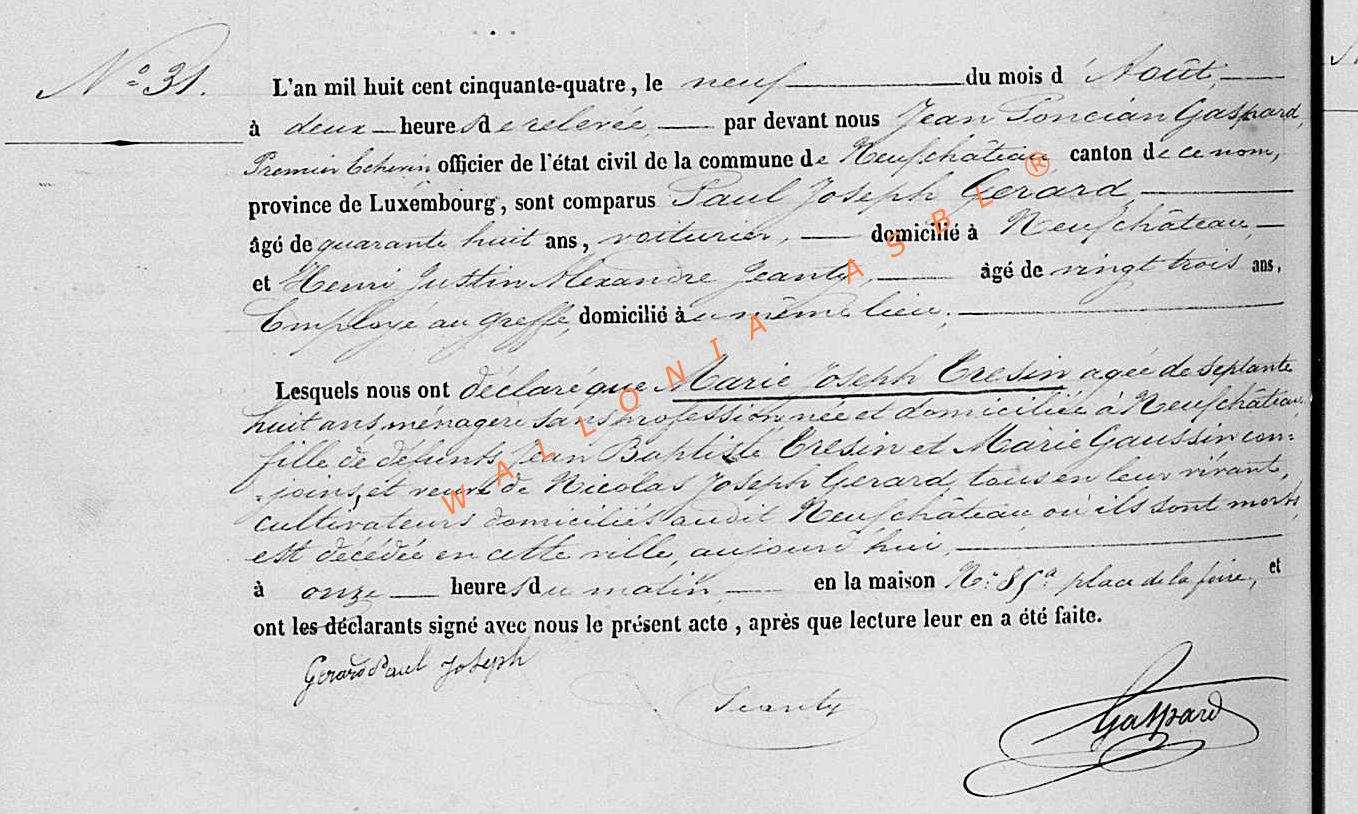 N° 31.
L'an mil huit cent cinquante-quatre, le neuf du mois d'Août,
à deux heures de relevée, par devant nous Jean Poncian Gaspard,
Premier Echevin officier de l'état civil de la commune de Neufchâteau canton de ce nom,
province de Luxembourg, sont comparus Paul Joseph Gerard,
âgé de quarante huit ans, voiturier, domicilié à Neufchâteau,
et Henri Justin Alexandre Jeanty, âgé de vingt trois ans,
Employé au greffe, domicilié au même lieu,
Lesquels nous ont déclaré que Marie Joseph Cresin agée de septante
huit ans ménagère sans profession née et domiciliée à Neufchâteau
fille de défunts Jean Baptiste Cresin et Marie Gaussin con=
=joins, et veuve de Nicolas Joseph Gerard tous en leur vivant,
cultivateurs domiciliés audit Neufchâteau où ils sont morts,
est décédée en cette ville, aujourd'hui,
à onze heures du matin, en la maison N° 85a place de la foire, et
ont les déclarants signé avec nous le présent acte, après que lecture leur en a été faite.
Gerard Paul Joseph
Jeanty
Gaspard
WALLONIA ASBL ®